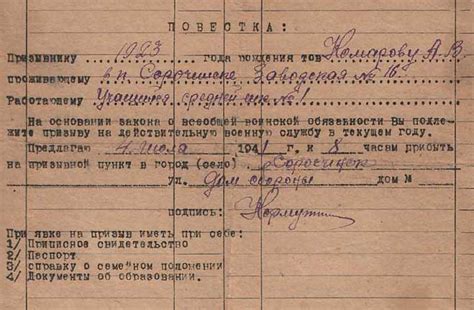 ПОВЕСТКА:
Призывнику 1923 года рождения тов Комарову А.В.
проживающему в п. Сорочинске Заводская № 16
Работающему Учащийся средней шк. № 1
На основании закона о всеобщей воинской обязательности Вы подле-
жите призыву на действительную военную службу в текущем году.
Предлагаю 4 июля 1941 г. к 8 часам прибыть
на призывной пункт в город (село) Сорочинск
ул. Дом обороны дом №
подпись:
При явке на призыв иметь при себе:
1/ Приписное свидетельство
2/ Паспорт
3/ справку о семейном положении
4/ Документы об образовании.